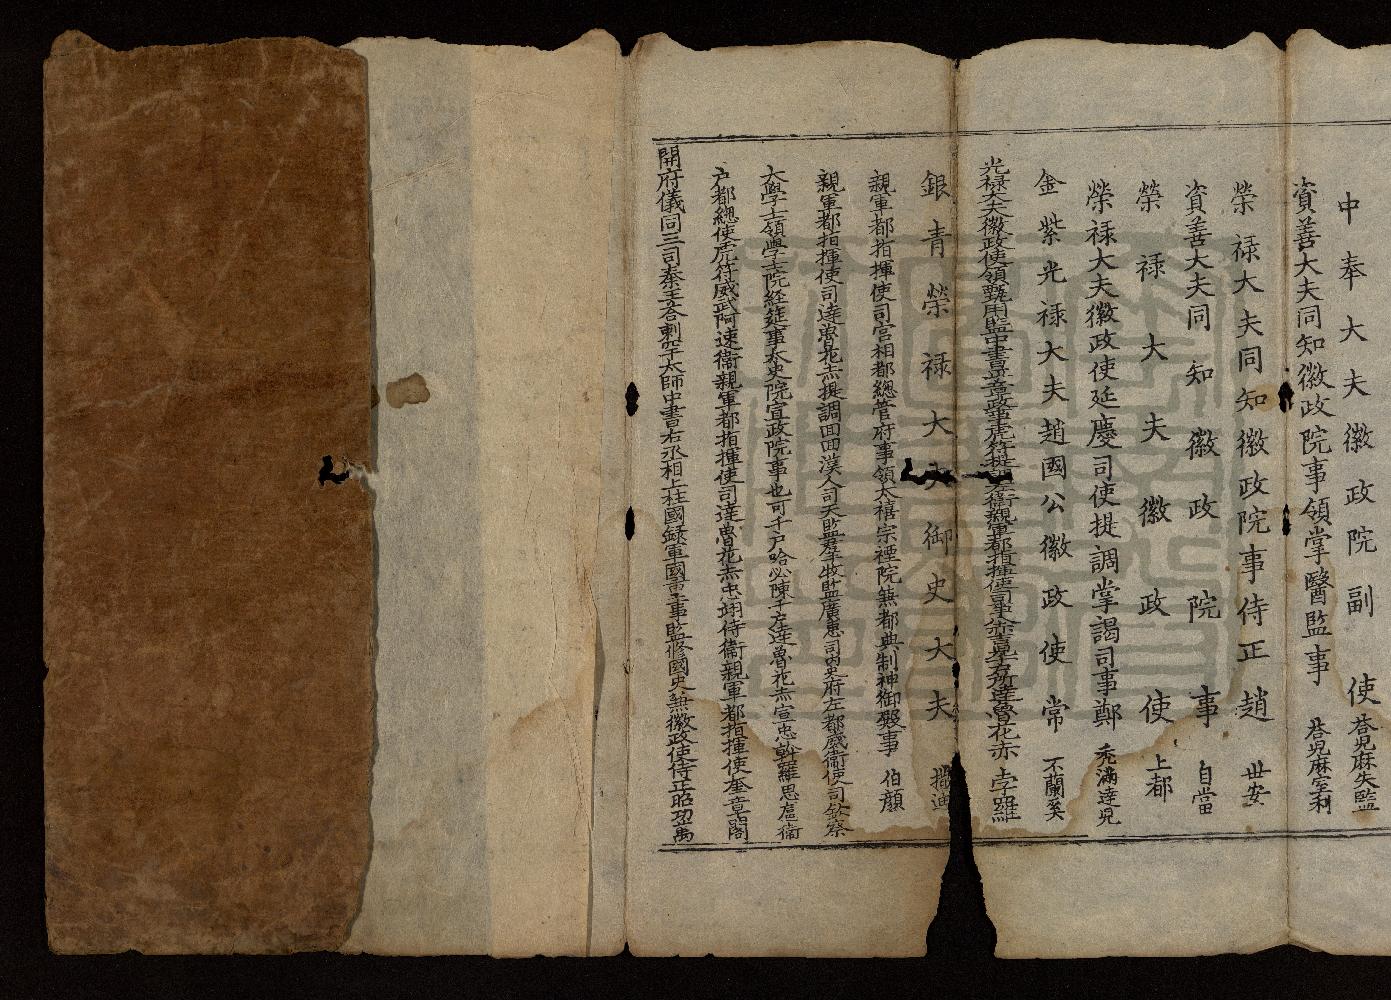 中奉大夫徽政院副使荅児麻失監
資善大夫同知徽政院事領掌醫監事荅児麻室利
榮祿大夫同知徽政院事侍正趙世安
資善大夫同知徽政院事自當
榮祿大夫徽政使上都
榮祿大夫徽政使延慶司使提調掌謁司事鄭禿滿達児
金紫光祿大夫趙國公徽政使常不蘭奚
光祿大夫徽政使領甄用監中書平章政事虎符提調左衛親軍都指揮使司事
銀青榮祿大夫御史大夫撒迪
親軍都指揮使司宮相都總管府事領太禧宗禋院兼都典制神御殿事伯顏
親軍都指揮使司達魯花赤提調回回漢人司天監羣牧監廣惠司内史府左都威衛使司欽察
大學士領學士院經筵事太史院宣政院事也可千戶哈必陳千戶達魯花赤宣忠斡羅思扈衛
戶都總使虎符威武阿速衛親軍都指揮使司達魯花赤忠翊侍衛親軍都指揮使奎章閣
開府儀同三司秦王荅剌罕太師中書右丞相上柱國録軍國重事監修國史兼徽政使侍正昭功萬